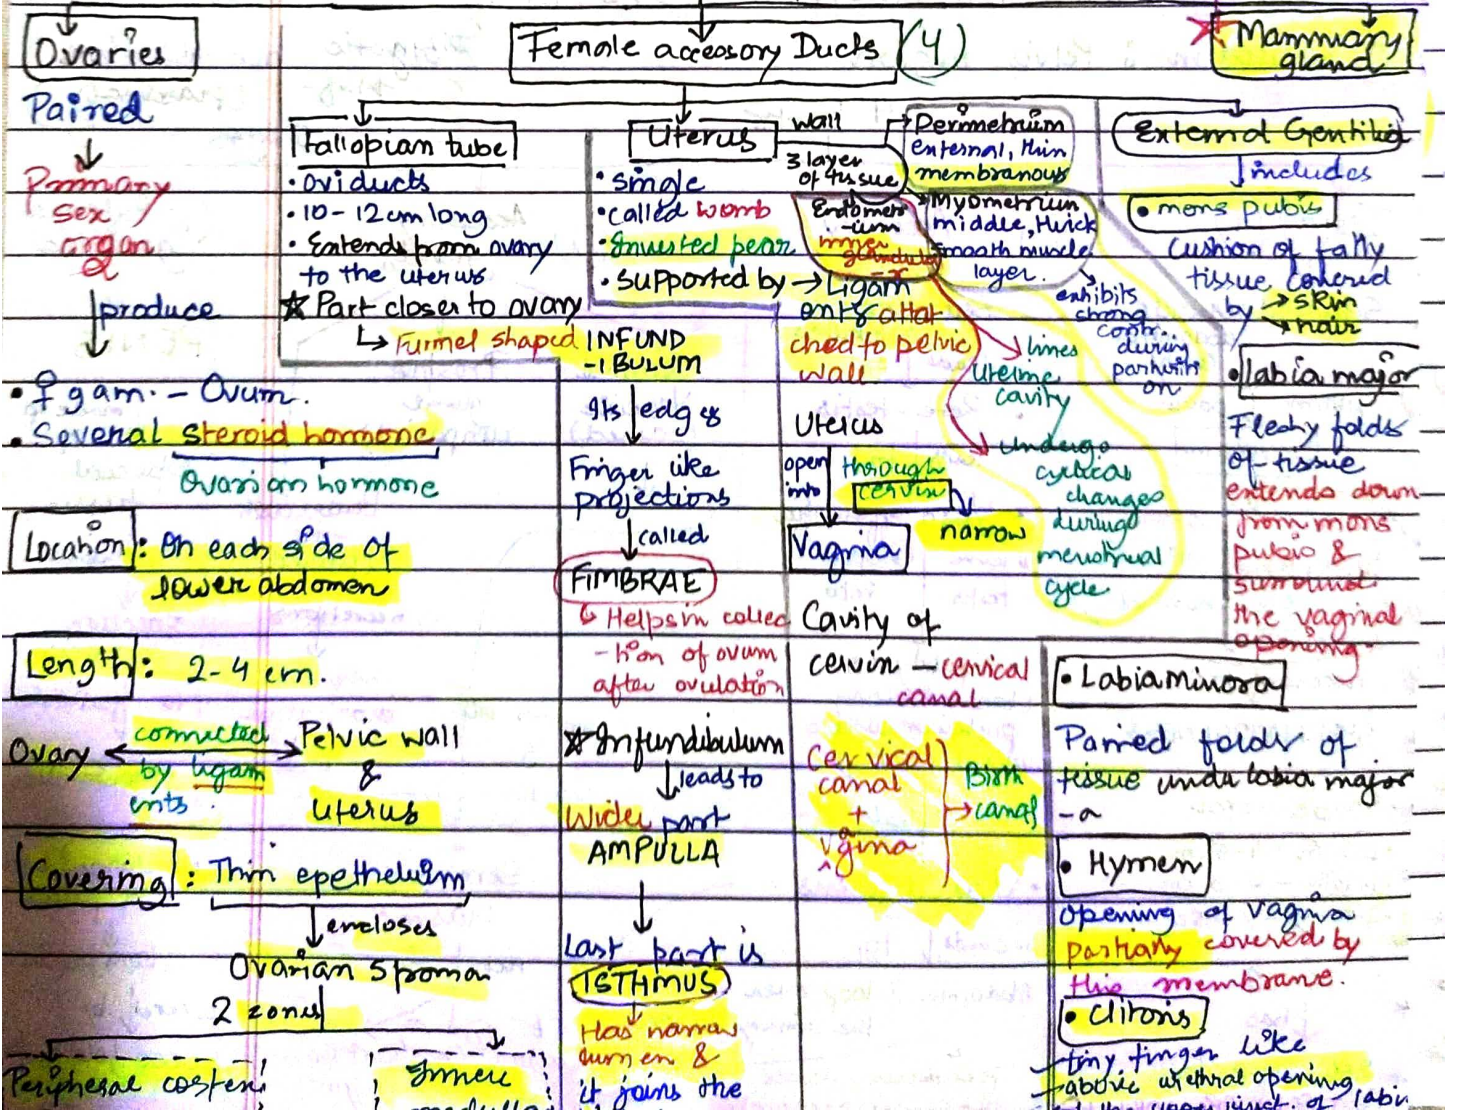 Ovaries
Paired
Primary
sex
organ
produce
• ♀ gam. - Ovum.
• Several steroid hormone
Ovarian hormone
Location: On each side of
lower abdomen
Length: 2-4 cm.
Ovary connected Pelvic wall
by ligam &
ents. Uterus
Covering: Thin epethelium
encloses
Ovarian Stroma
2 zones
Peripheral cortex
Inner
Female accessory Ducts (4)
Fallopian tube
• oviducts
• 10-12cm long
• Extends from ovary
to the uterus
☆ Part closer to ovary
↳ Funnel shaped INFUND
-IBULUM
Its edges
Finger like
projections
called
FIMBRAE
↳ Helps in collec
-tion of ovum
after ovulation
☆ Infundibulum
leads to
Wider part
AMPULLA
Last part is
ISTHMUS
Has narrow
lumen &
it joins the
Uterus
• single
• called womb
• Inverted pear
• supported by → Ligam
ents attat
ched to pelvic
wall
wall
3 layer
of tissue
Perimetrium
external, thin
membranous
Myometrium
middle, thick
smooth muscle
layer.
exhibits
strong
contr.
during
parturiti
on
Endometr
-ium
inner
glandula
-r
lines
uterine
cavity
undergo
cyclical
changes
during
menstrual
cycle
Uterus
open through
into cervix
narrow
Vagina
Cavity of
cervix - cervical
canal
Cervical
canal
+
vagina
Birth
→ canal
Mammary
gland
External Gentilia
includes
• mons pubis
Cushion of fatty
tissue covered
by → skin
→ hair
• labia major
Fleshy folds
of tissue
extends down
from mons
pubis &
surround
the vaginal
opening.
• Labia minora
Paired folds of
tissue undu labia major
-a
• Hymen
opening of vagina
partially covered by
this membrane.
• Clitoris
tiny finger like
above urethral opening